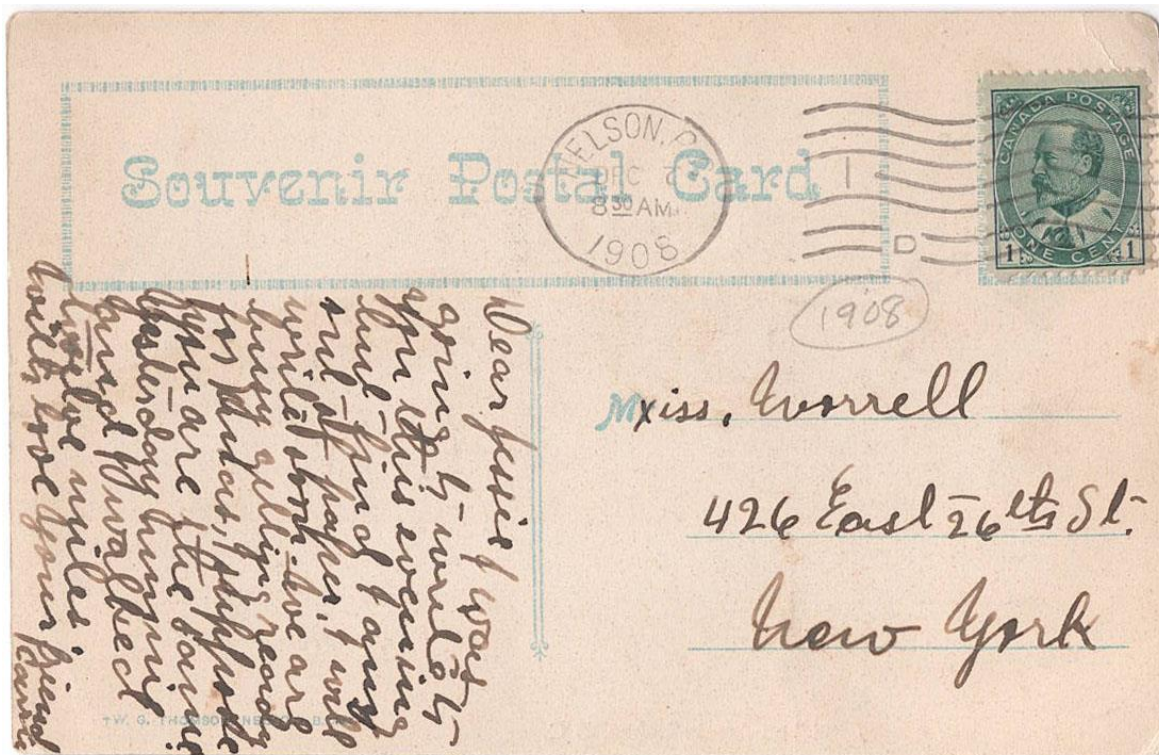 Souvenir Postal Card
NELSON, B.C.
DEC 7
8 30 AM
1908
1
D
CANADA POSTAGE
1 ONE CENT 1
1908
Miss. Worrell
426 East 26th St.
New York
Dear Jessie I was
going to write to
you this evening
but find I am
out of paper, I will
write soon. we are
busy getting ready
for Xmas, I suppose
you are the same
Yesterday
and I walked
twelve miles.
with love your friend
W. G. THOMSON, NELSON, B.C.